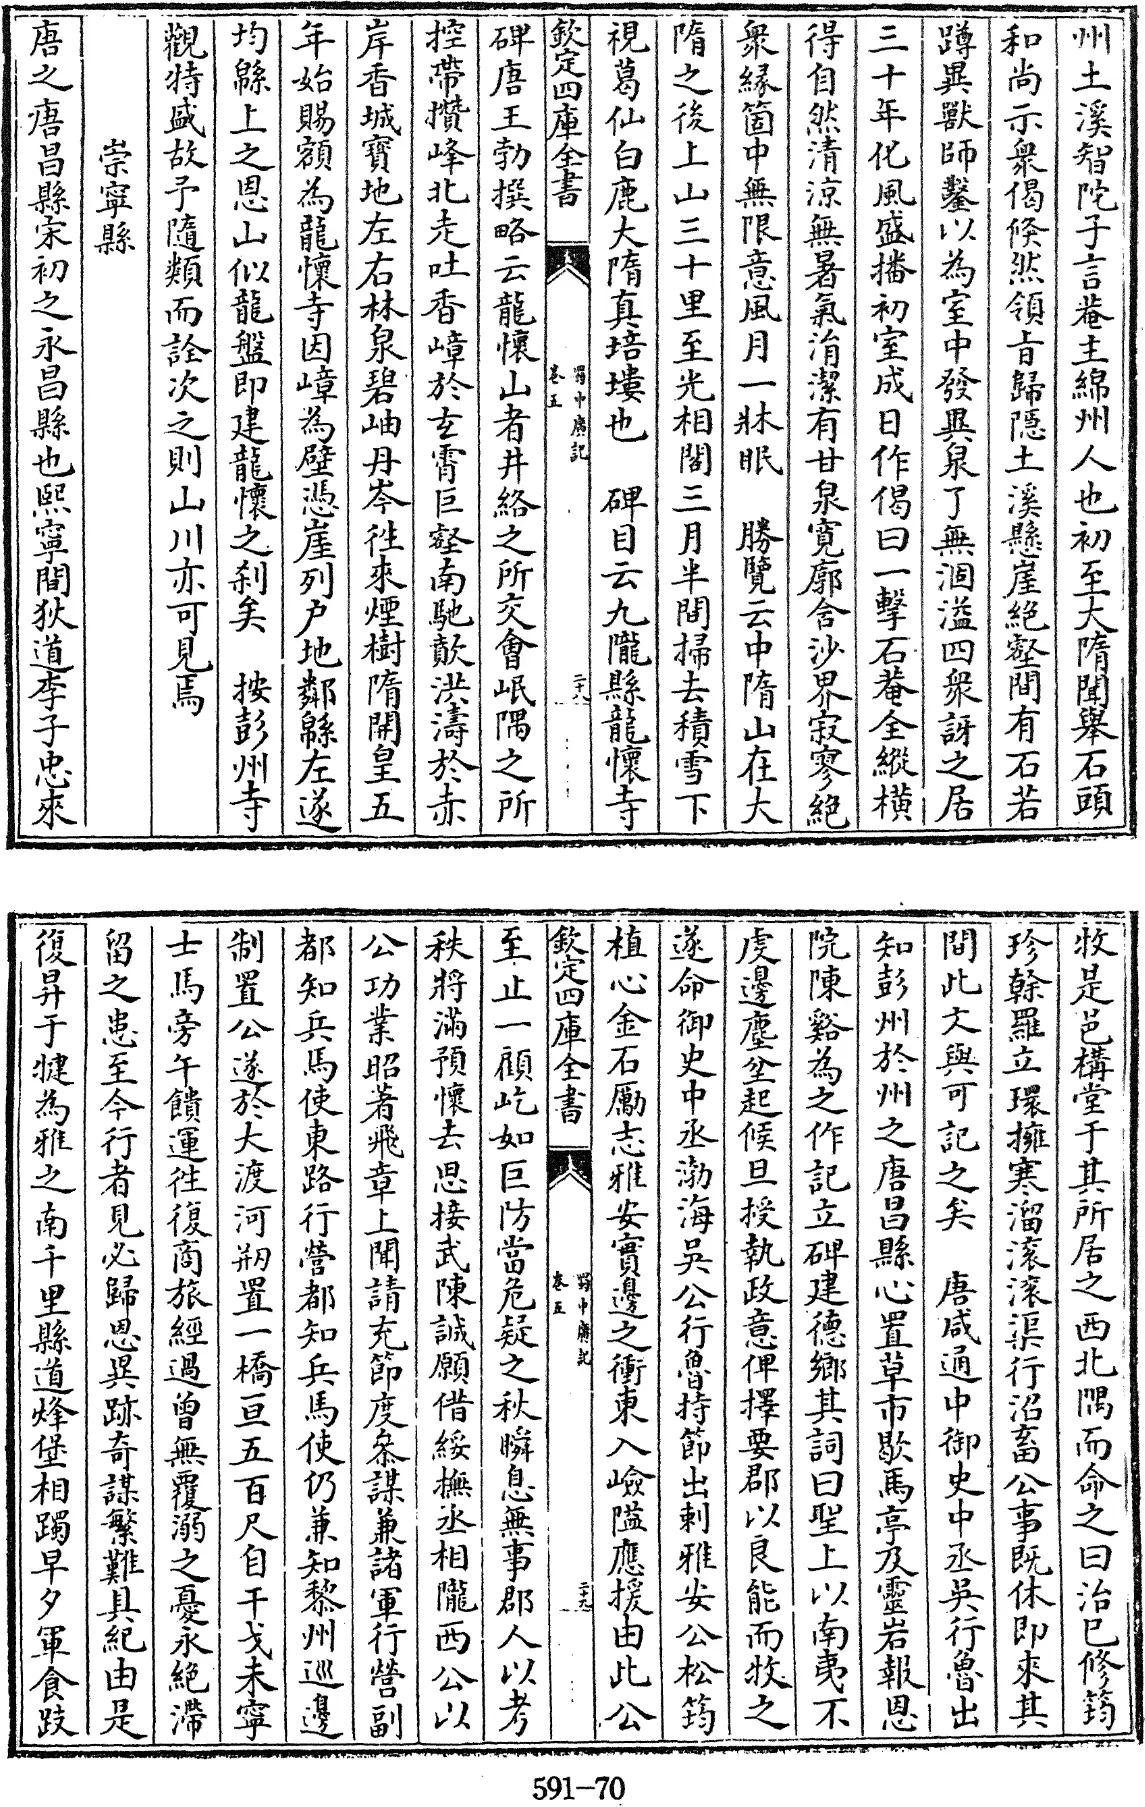 州土溪智陀子言菴主綿州人也初至大隋聞舉石頭
和尚示衆偈倐然領㫖歸隐土溪懸崖絶壑間有石若
蹲異獸師鑿以為室中發異泉了無涸溢四衆訝之居
三十年化風盛播初室成日作偈曰一擊石菴全縱横
得自然清涼無暑氣涓潔有甘泉寛廓含沙界寂寥絶
衆縁箇中無限意風月一牀眠　勝覽云中隋山在大
隋之後上山三十里至光相閣三月半間掃去積雪下
視葛仙白鹿大隋真培塿也　碑目云九隴縣龍懷寺
欽定四庫全書
蜀中廣記
卷五
二十八
碑唐王勃撰略云龍懷山者井絡之所交會岷隅之所
控帶攢峰北走吐香嶂於玄霄巨壑南馳歕洪濤於赤
岸香城寶地左右林泉碧岫丹岑徃來煙樹隋開皇五
年始賜額為龍懷寺因嶂為壁憑崖列户地鄰緜左遂
均緜上之恩山似龍盤即建龍懷之刹矣　按彭州寺
觀特盛故予隨類而詮次之則山川亦可見焉
崇寧縣
唐之唐昌縣宋初之永昌縣也熙寧間狄道李子忠來
牧是邑構堂于其所居之西北隅而命之曰治已修筠
珍榦羅立環擁寒溜滚滚渠行沼畜公事既休即來其
間此文與可記之矣　唐咸通中御史中丞吳行魯出
知彭州於州之唐昌縣心置草市歇馬亭及靈岩報恩
院陳谿為之作記立碑建德鄉其詞曰聖上以南夷不
虔邊塵坌起候旦授執政意俾擇要郡以良能而牧之
遂命御史中丞渤海吳公行魯持節出刺雅安公松筠
植心金石勵志雅安實邊之衝東入嶮隘應援由此公
欽定四庫全書
蜀中廣記
卷五
二十九
至止一顧屹如巨防當危疑之秋瞬息無事郡人以考
秩將滿預懷去思接武陳誠願借綏撫丞相隴西公以
公功業昭著飛章上聞請充節度叅謀兼諸軍行營副
都知兵馬使東路行營都知兵馬使仍兼知黎州巡邊
制置公遂於大渡河剙置一橋亘五百尺自干戈未寧
士馬旁午饋運徃復商旅經過曾無覆溺之憂永絶滯
留之患至今行者見必歸恩異跡奇謀繁難具紀由是
復昇于犍為雅之南千里縣道烽堡相躅早夕軍食跂
591-70